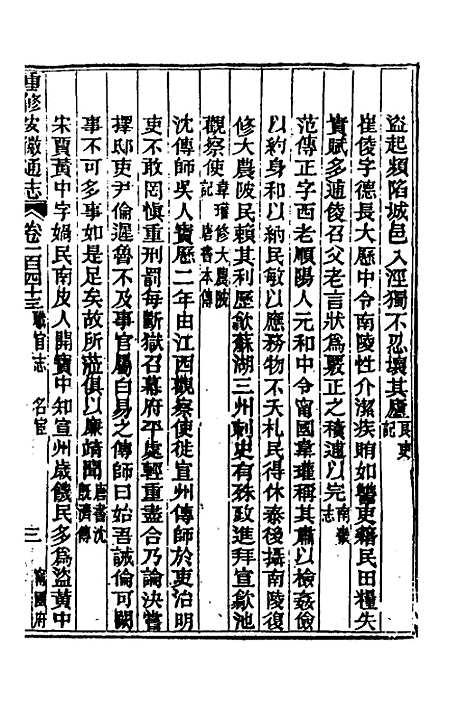 盜起頻陷城邑入涇獨不忍壞其廬良吏記
崔倰字德長大歷中令南陵性介潔疾賄如讐吏籍民田糧失
實賦多逋倰召父老言狀爲覈正之積逋以完南畿志
范傳正字西老順陽人元和中令甯國韋瓘稱其肅以檢姦儉
以約身和以納民敏以應務物不夭札民得休泰後攝南陵復
修大農陂民賴其利歷歙蘇湖三州刺史有殊政進拜宣歙池
觀察使韋瓘修大農陂記唐書本傳
沈傳師吳人寶歷二年由江西觀察使徙宣州傳師於吏治明
吏不敢罔愼重刑罰每斷獄召幕府平處輕重盡合乃論決嘗
擇邸吏尹倫遲魯不及事官屬白易之傳師曰始吾誡倫可闕
事不可多事如是足矣故所蒞俱以廉靖聞唐書沈旣濟傳
宋賈黃中字媧民南皮人開寶中知宣州歲饑民多爲盜黃中
重修安徽通志 卷一百四十三 職官志 名宦 三 甯國府